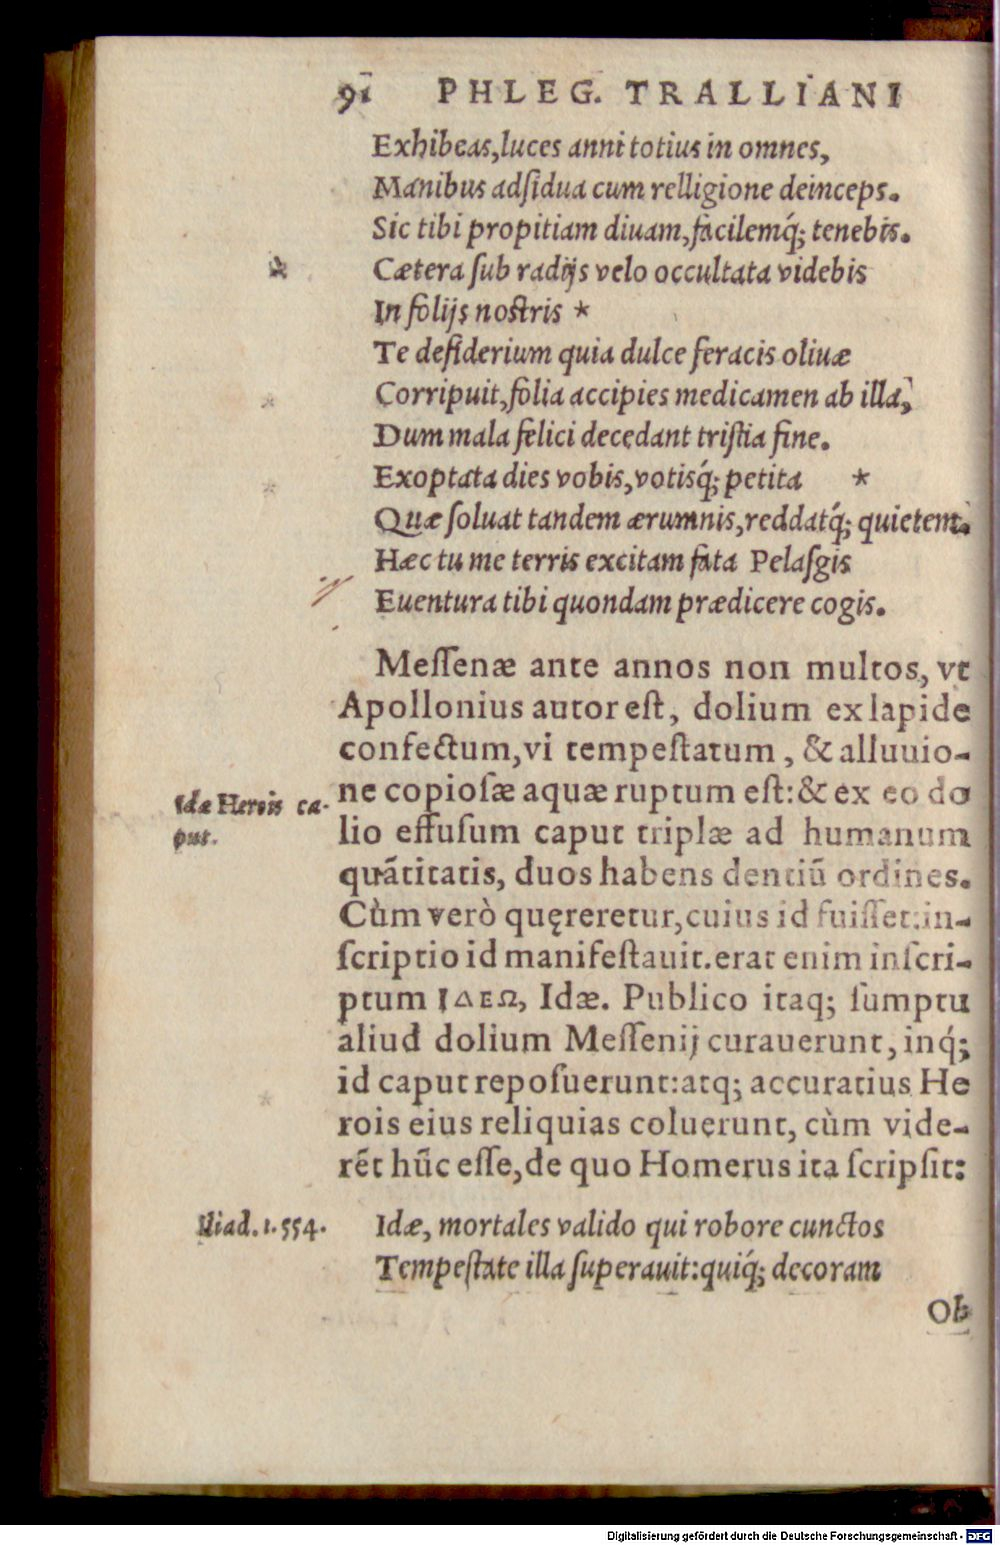 91 PHLEG. TRALLIANI
Exhibeas,luces anni totius in omnes,
Manibus adſidua cum relligione deinceps.
Sic tibi propitiam diuam,facilemq́; tenebis.
* Cætera ſub radijs velo occultata videbis
In folijs noſtris *
Te deſiderium quia dulce feracis oliuæ
* Corripuit,folia accipies medicamen ab illa,
Dum mala felici decedant triſtia fine.
* Exoptata dies vobis,votisq́; petita *
Quæ ſoluat tandem ærumnis,reddatq́; quietem.
Hæc tu me terris excitam fata Pelaſgis
Euentura tibi quondam prædicere cogis.
Meſſenæ ante annos non multos, vt
Apollonius autor eſt, dolium ex lapide
confectum,vi tempeſtatum, & alluuio-
ne copioſæ aquæ ruptum eſt:& ex eo do
Idæ Herois ca-
put.
lio effuſum caput triplæ ad humanum
quãtitatis, duos habens dentiũ ordines.
Cùm verò quęreretur,cuius id fuiſſet:in-
ſcriptio id manifeſtauit.erat enim inſcri-
ptum ΙΔΕΩ, Idæ. Publico itaq; ſumptu
aliud dolium Meſſenij curauerunt, inq́;
id caput repoſuerunt:atq; accuratius He
rois eius reliquias coluerunt, cùm vide-
rẽt hũc eſſe,de quo Homerus ita ſcripſit:
Iliad. 1.554.
Idæ, mortales valido qui robore cunctos
Tempeſtate illa ſuperauit:quiq́; decoram
Ob
Digitalisierung gefördert durch die Deutsche Forschungsgemeinschaft - DFG